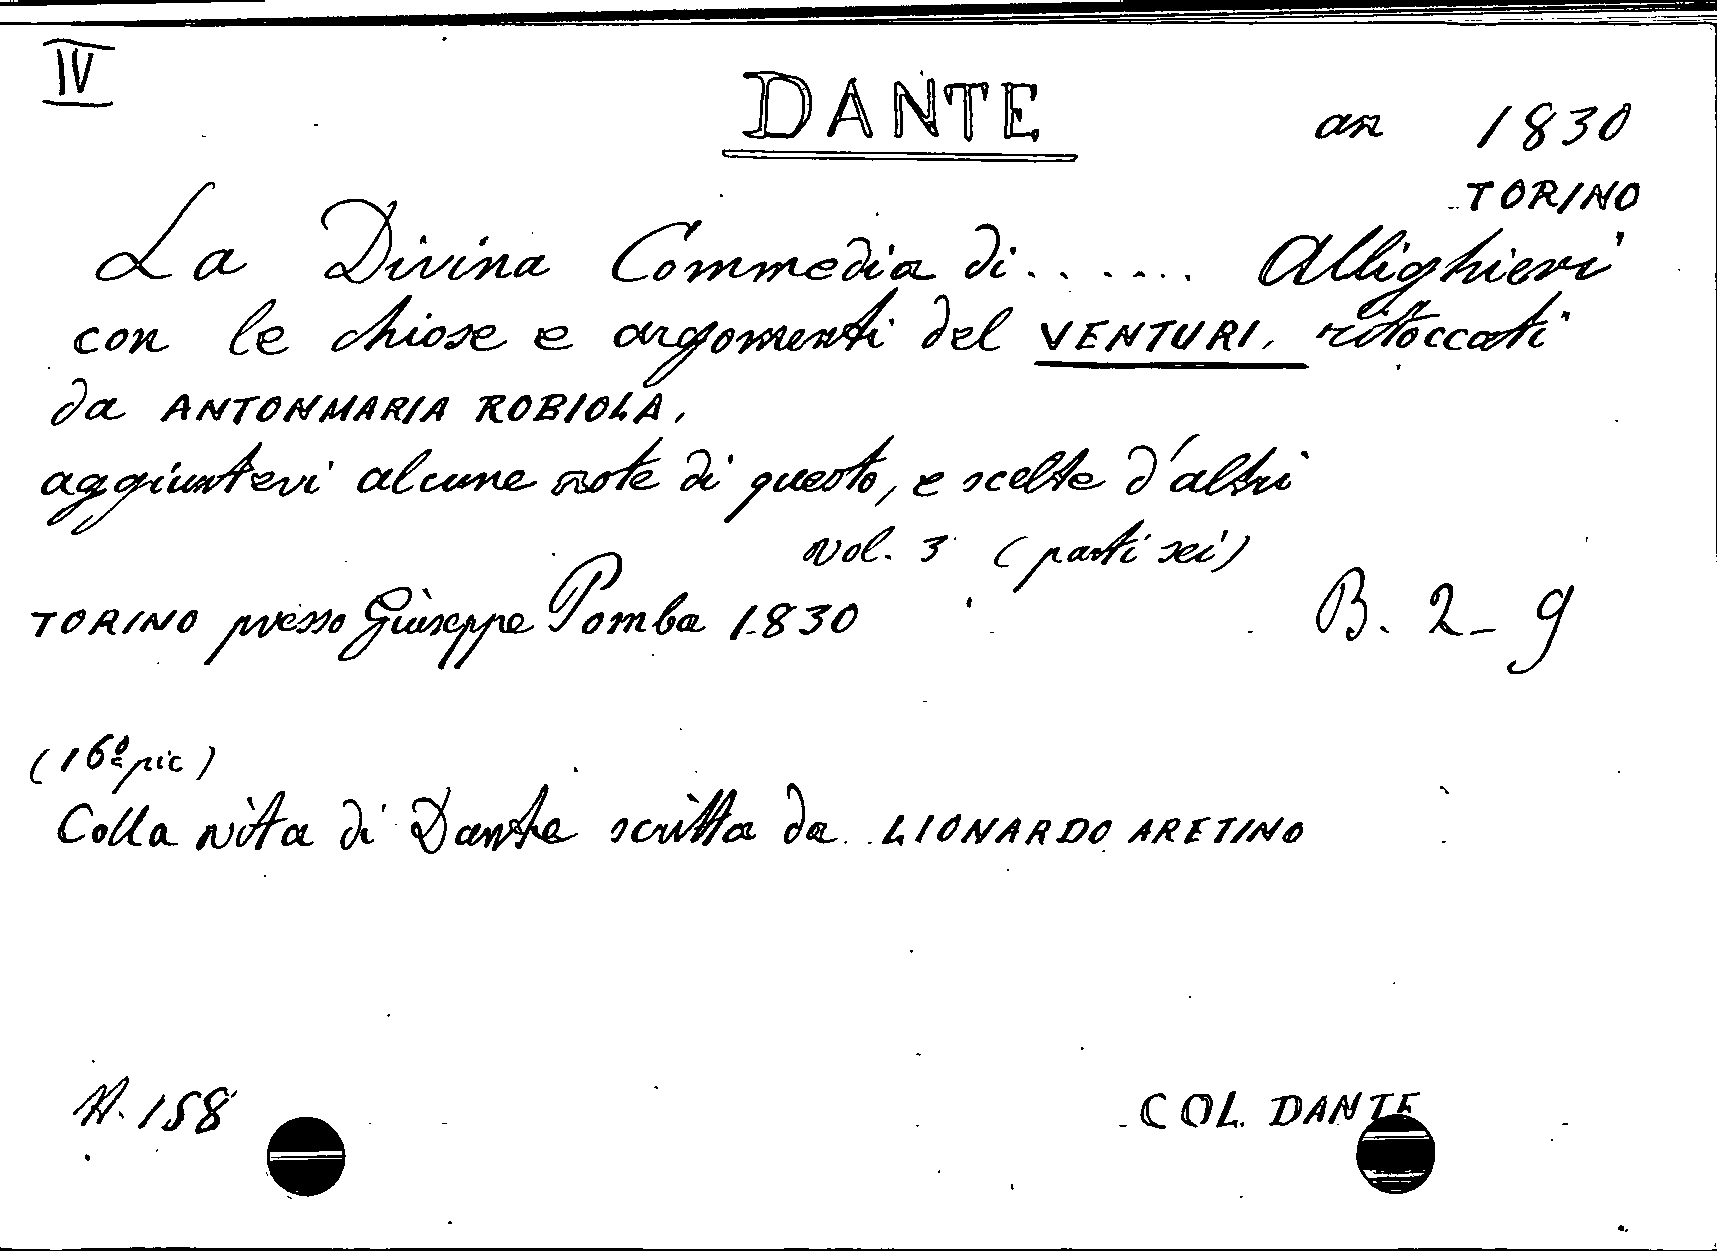 IV
DANTE
an 1830
TORINO
La Divina Commedia di...... Allighieri
con le chiose e argomenti del VENTURI, ritoccati
da ANTONMARIA ROBIOLA,
aggiuntevi alcune note di questo, e scelte d'altri
vol. 3 (parti sei)
TORINO presso Giuseppe Pomba 1830 B. 2-9
(16º pic)
Colla vita di Dante scritta da LIONARDO ARETINO
N. 158
COL. DANTE